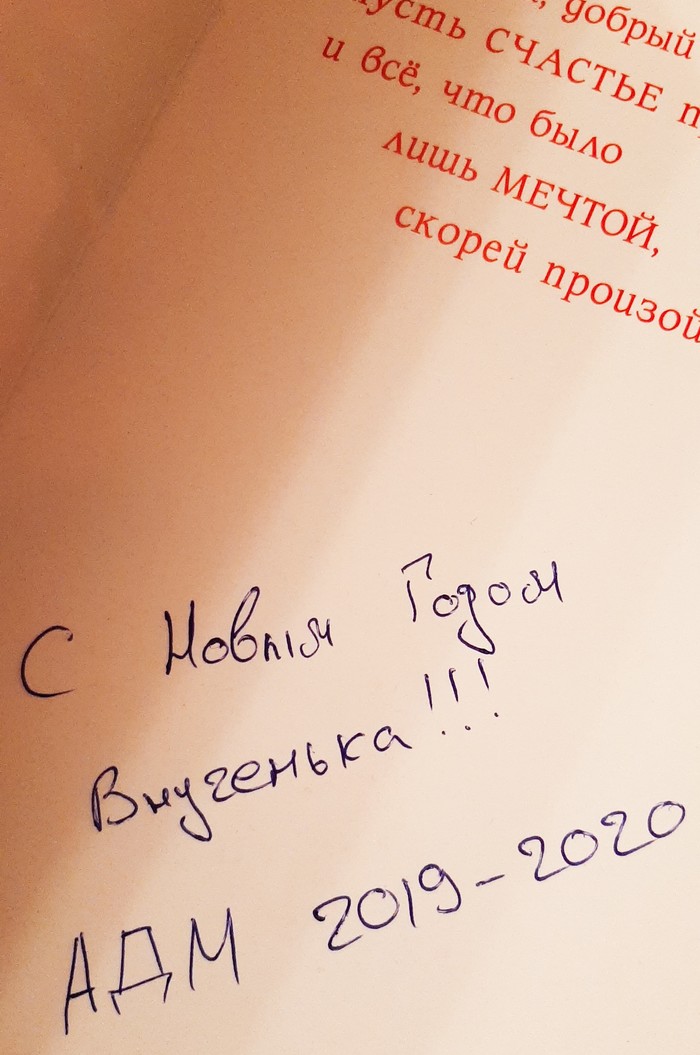 добрый
пусть СЧАСТЬЕ
и всё, что было
лишь МЕЧТОЙ,
скорей произой
С Новым Годом
Внученька!!!
АДМ 2019-2020